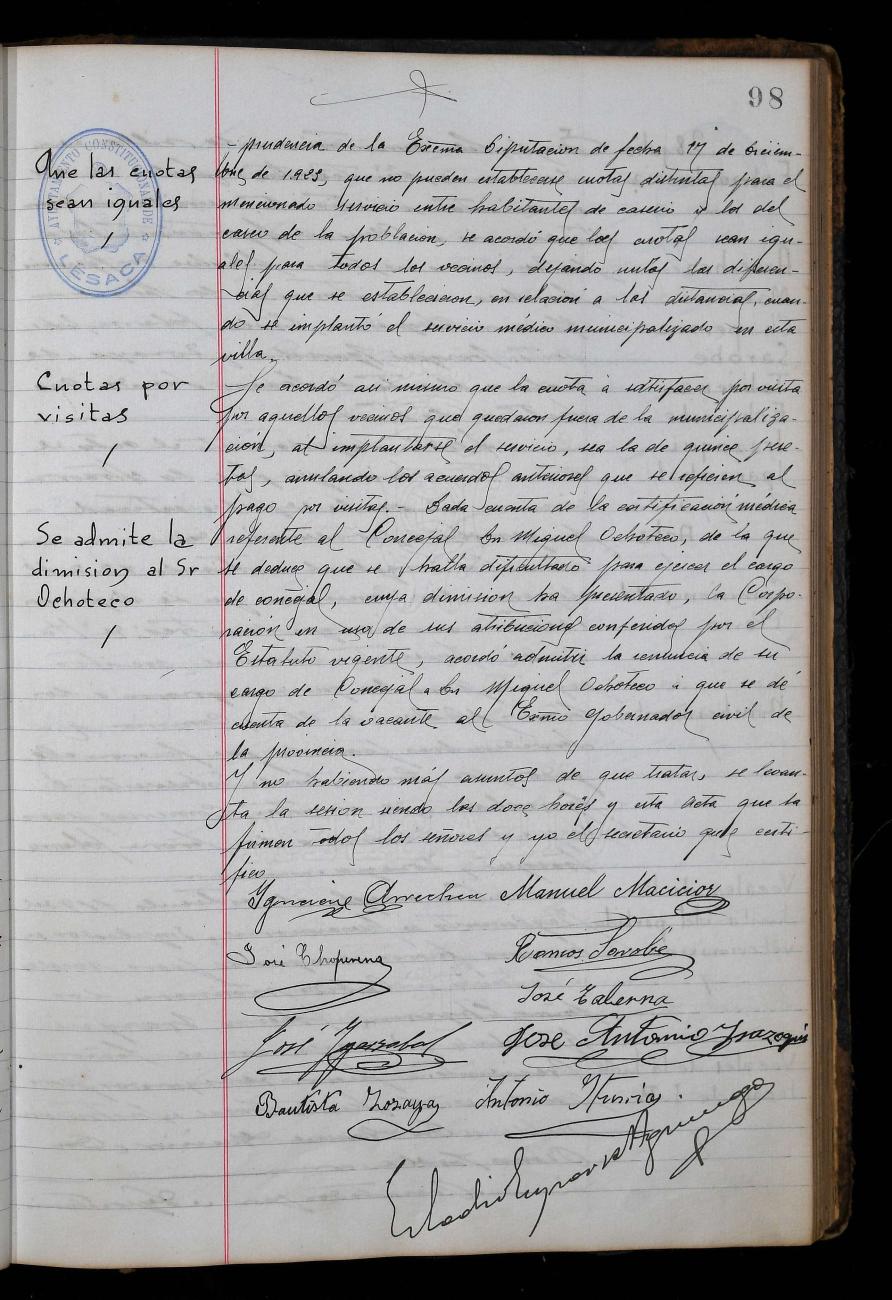 98
- prudencia de la Excma Diputacion de fecha 17 de Diciem-
bre, de 1925, que no pueden establecerse cuotas distintas para el
mencionado servicio entre habitantes de caserio y los del
casco de la poblacion, se acordó que las cuotas sean igu-
ales para todos los vecinos, dejando nulas las diferen-
cias que se establecieron, en relación a las distancias, cuan-
do se implantó el servicio médico municipalizado en esta
villa.
Se acordó asi mismo que la cuota a satisfacer por visita
por aquellos vecinos que quedaron fuera de la municipaliza-
cion, al implantarse el servicio, sea la de quince pese-
tas, anulando los acuerdos anteriores que se refieren al
pago por visitas.- Dada cuenta de la certificación médica
referente al Concejal Dn Miguel Ochoteco, de la que
se deduce que se halla dificultado para ejercer el cargo
de concejal, cuya dimision ha presentado, la Corpo-
ración en uso de sus atribuciones conferidas por el
Estatuto vigente, acordó admitir la renuncia de su
cargo de Concejal a Dn Miguel Ochoteco i que se dé
cuenta de la vacante al Excmo Gobernador civil de
la provincia.
Y no habiendo más asuntos de que tratar, se levan-
ta la sesion siendo las doce horas y esta acta que la
firman todos los señores y yo el secretario que certi-
fico
Que las cuotas
sean iguales
/
AYUNTAMIENTO CONSTITUCIONAL DE
LESACA
Cuotas por
visitas
/
Se admite la
dimision al Sr
Ochoteco
/
Manuel Macicior
José Choperena
Ramos Sarobe
José Taberna
José
José Antonio
Bautista Zozaya
Antonio
Eladio